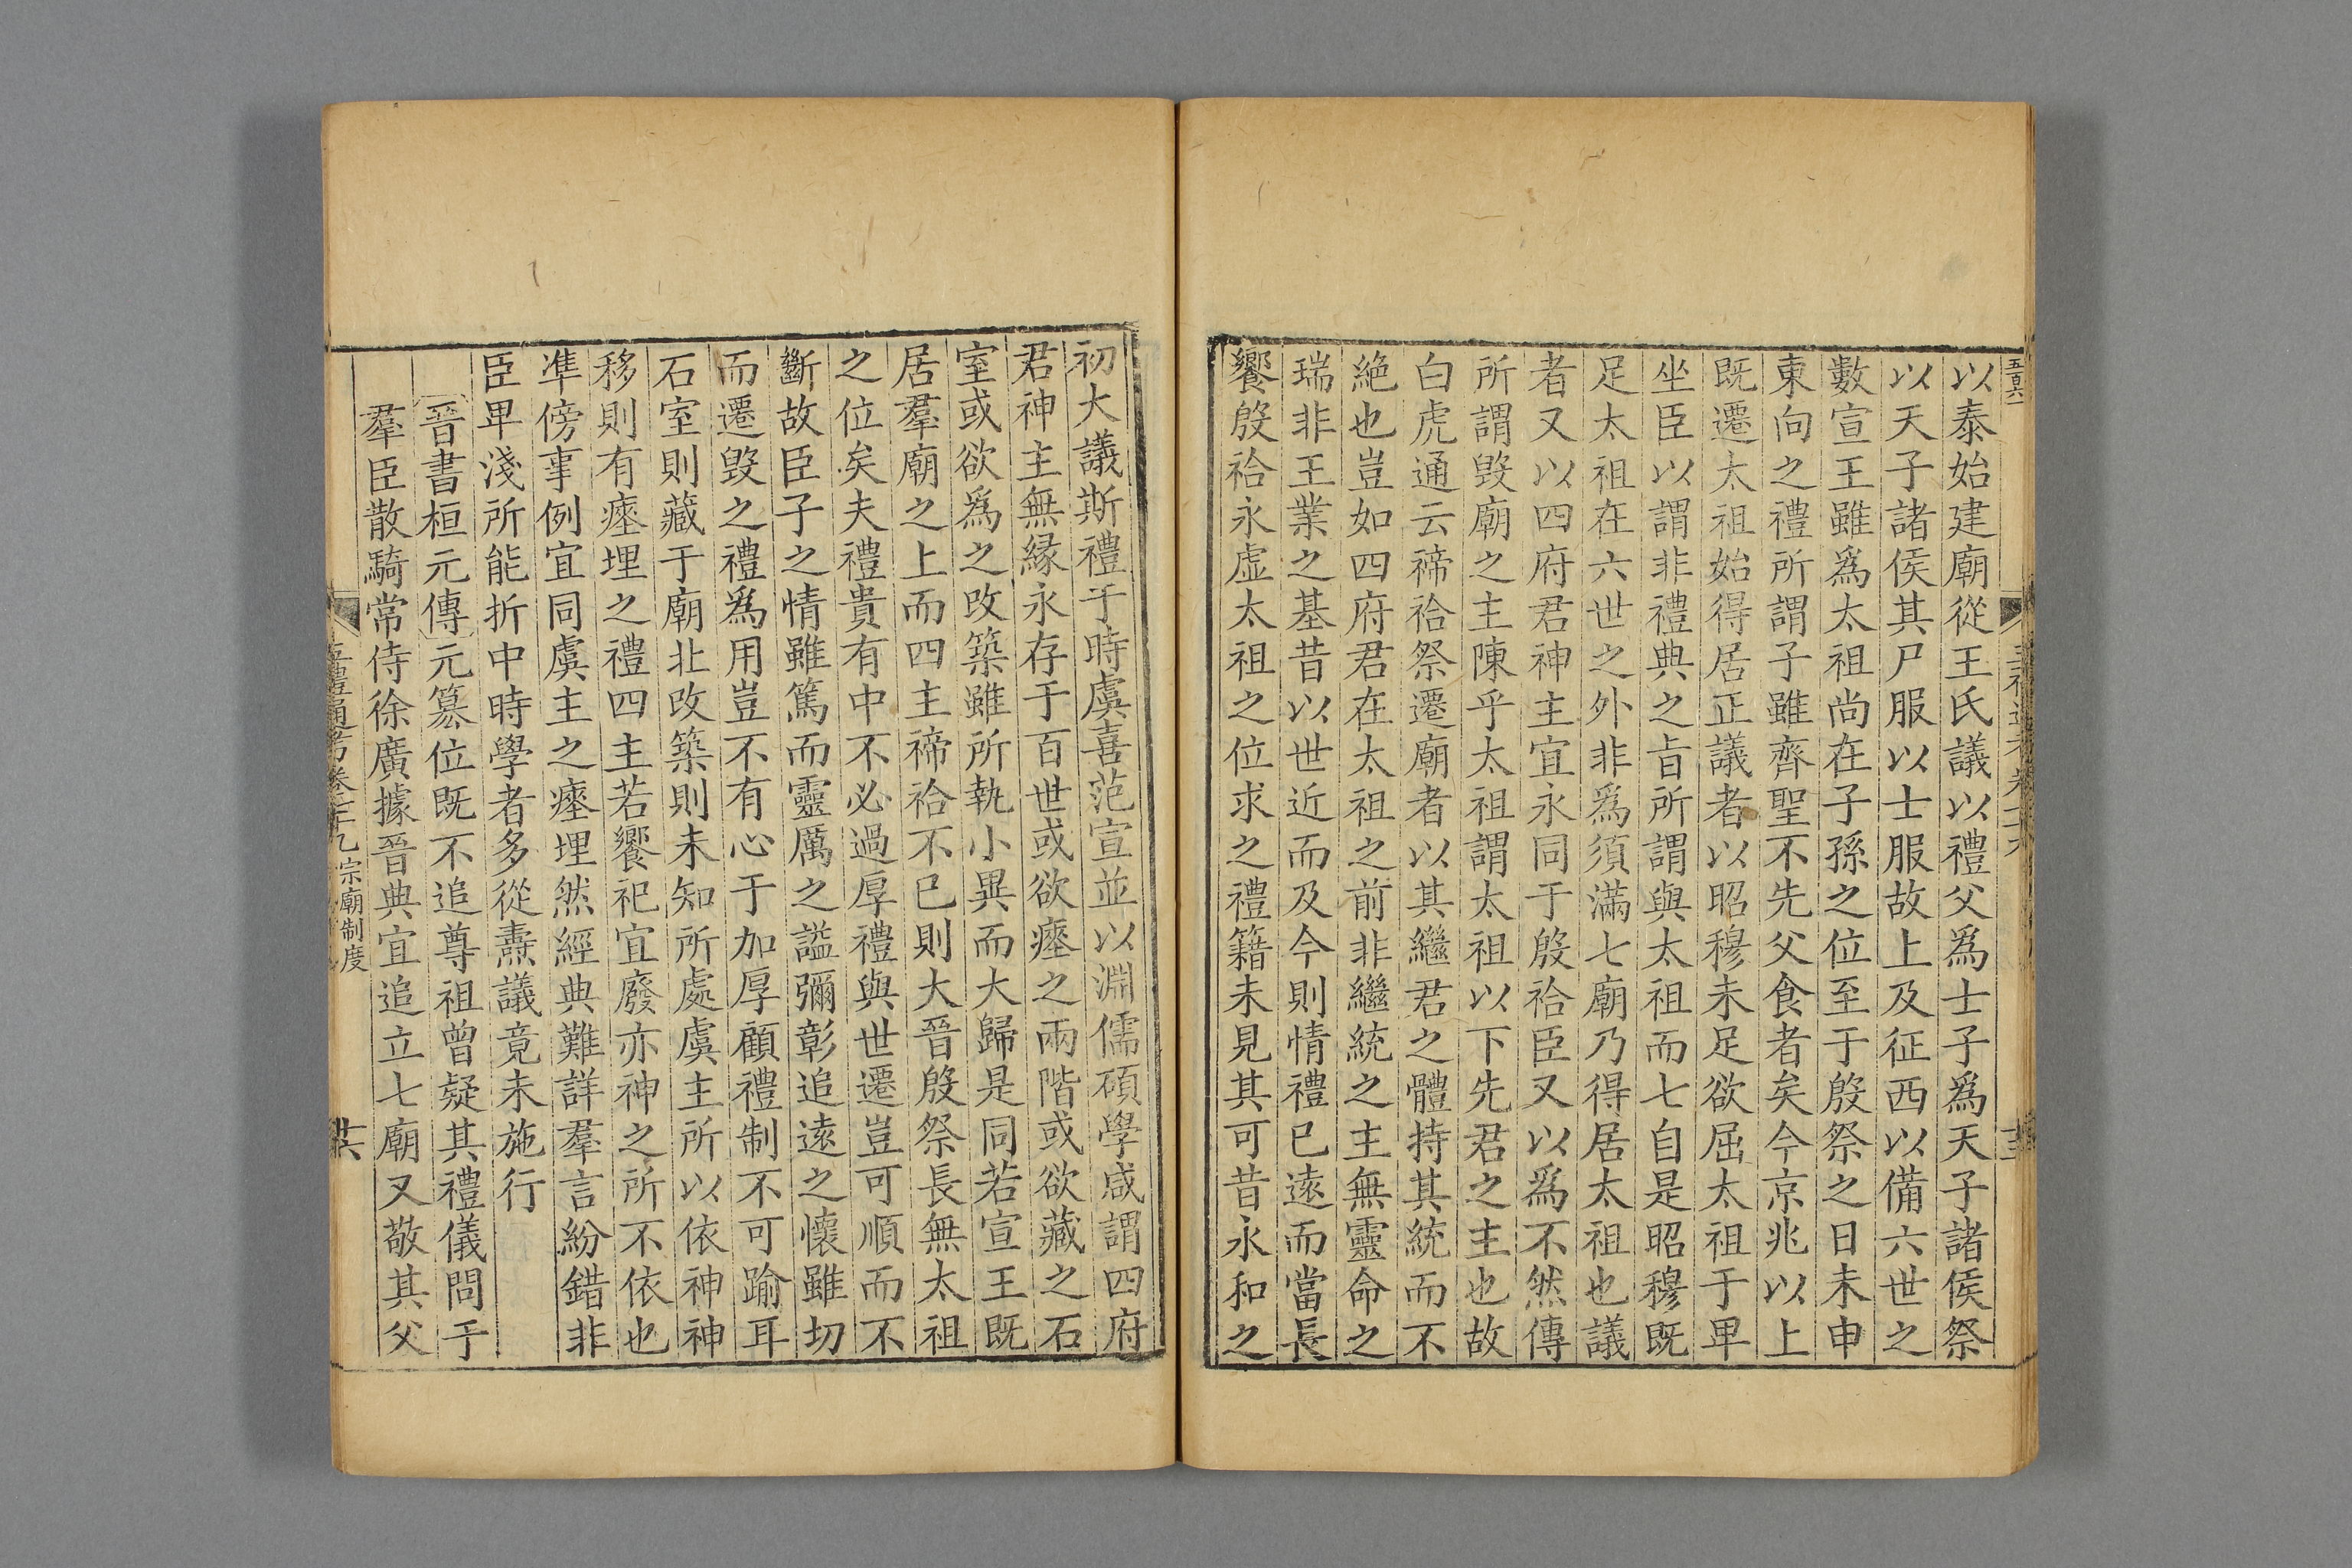 五百六
以泰始建廟從王氏議以禮父爲士子爲天子諸侯祭
以天子諸侯其尸服以士服故上及征西以備六世之
數宣王雖爲太祖尚在子孫之位至于殷祭之日未申
東向之禮所謂子雖齊聖不先父食者矣今京兆以上
既遷太祖始得居正議者以昭穆未足欲屈太祖于畢
坐臣以謂非禮典之㫖所謂與太祖而七自是昭穆既
足太祖在六世之外非爲須滿七廟乃得居太祖也議
者又以四府君神主宜永同于殷祫臣又以爲不然傳
所謂毀廟之主陳乎太祖謂太祖以下先君之主也故
白虎通云禘祫祭遷廟者以其繼君之體持其統而不
絶也豈如四府君在太祖之前非繼統之主無靈命之
瑞非王業之基昔以世近而及今則情禮已遠而當長
饗殷祫永虛太祖之位求之禮籍未見其可昔永和之
初大議斯禮于時虞喜范宣並以淵儒碩學咸謂四府
君神主無緣永存于百世或欲瘞之兩階或欲藏之石
室或欲爲之改築雖所執小異而大歸是同若宣王既
居羣廟之上而四主禘祫不已則大晉殷祭長無太祖
之位矣夫禮貴有中不必過厚禮與世遷豈可順而不
斷故臣子之情雖篤而靈厲之謚彌彰追遠之懷雖切
而遷毀之禮爲用豈不有心于加厚顧禮制不可踰耳
石室則藏于廟北改築則未知所處虞主所以依神神
移則有瘞埋之禮四主若饗祀宜廢亦神之所不依也
凖傍事例宜同虞主之瘞埋然經典難詳羣言紛錯非
臣𤰞淺所能折中時學者多從燾議竟未施行
晉書桓元傳元簒位既不追尊祖曾疑其禮儀問于
羣臣散騎常侍徐廣據晉典宜追立七廟又敬其父
五禮通考卷五十九 宗廟制度
廿六